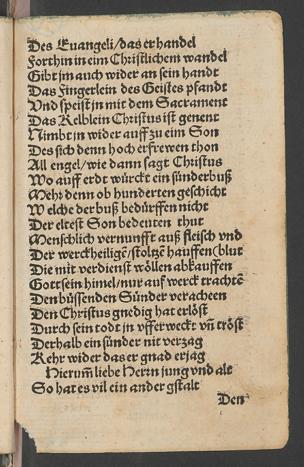 Des Euangeli/das er handel
Forthin in eim Christlichem wandel
Gibt jm auch wider an sein handt
Das Fingerlein des Geistes pfandt
Vnd speist jn mit dem Sacrament
Das Kelblein Christus ist genent
Nimbt jn wider auff zu eim Son
Des sich denn hoch erfrewen thon
All engel/wie dann sagt Christus
Wo auff erdt würckt ein sünderbuß
Mehr denn ob hunderten geschicht
Welche der buß bedürffen nicht
Der eltest Son bedeuten thut
Menschlich vernunfft auß fleisch vnd
Der werckheiligẽ/stoltzẽ hauffen (blut
Die mit verdienst wöllen abkauffen
Gott sein himel/nur auff werck trachtẽ
Den büssenden Sünder verachten
Den Christus gnedig hat erlöst
Durch sein todt jn vffer weckt vñ tröst
Derhalb ein sünder nit verzag
Kehr wider das er gnad erjag
Hierum̃ liebe Herrn jung vnd alt
So hat es vil ein ander gstalt
Den